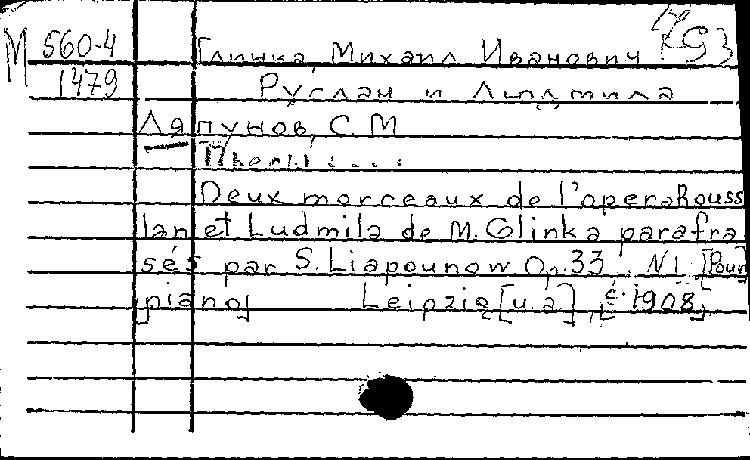 М 560-4 Глинка, Михаил Иванович
1479 Руслан и Людмила
Ляпунов, С. М
Deux morceaux de l'opera Rouss
lan et Ludmila de M. Glinka parafra
sés par S. Liapounow Op. 33 N1 [Pour
piano] Leipzig [u. a], [c. 1908]